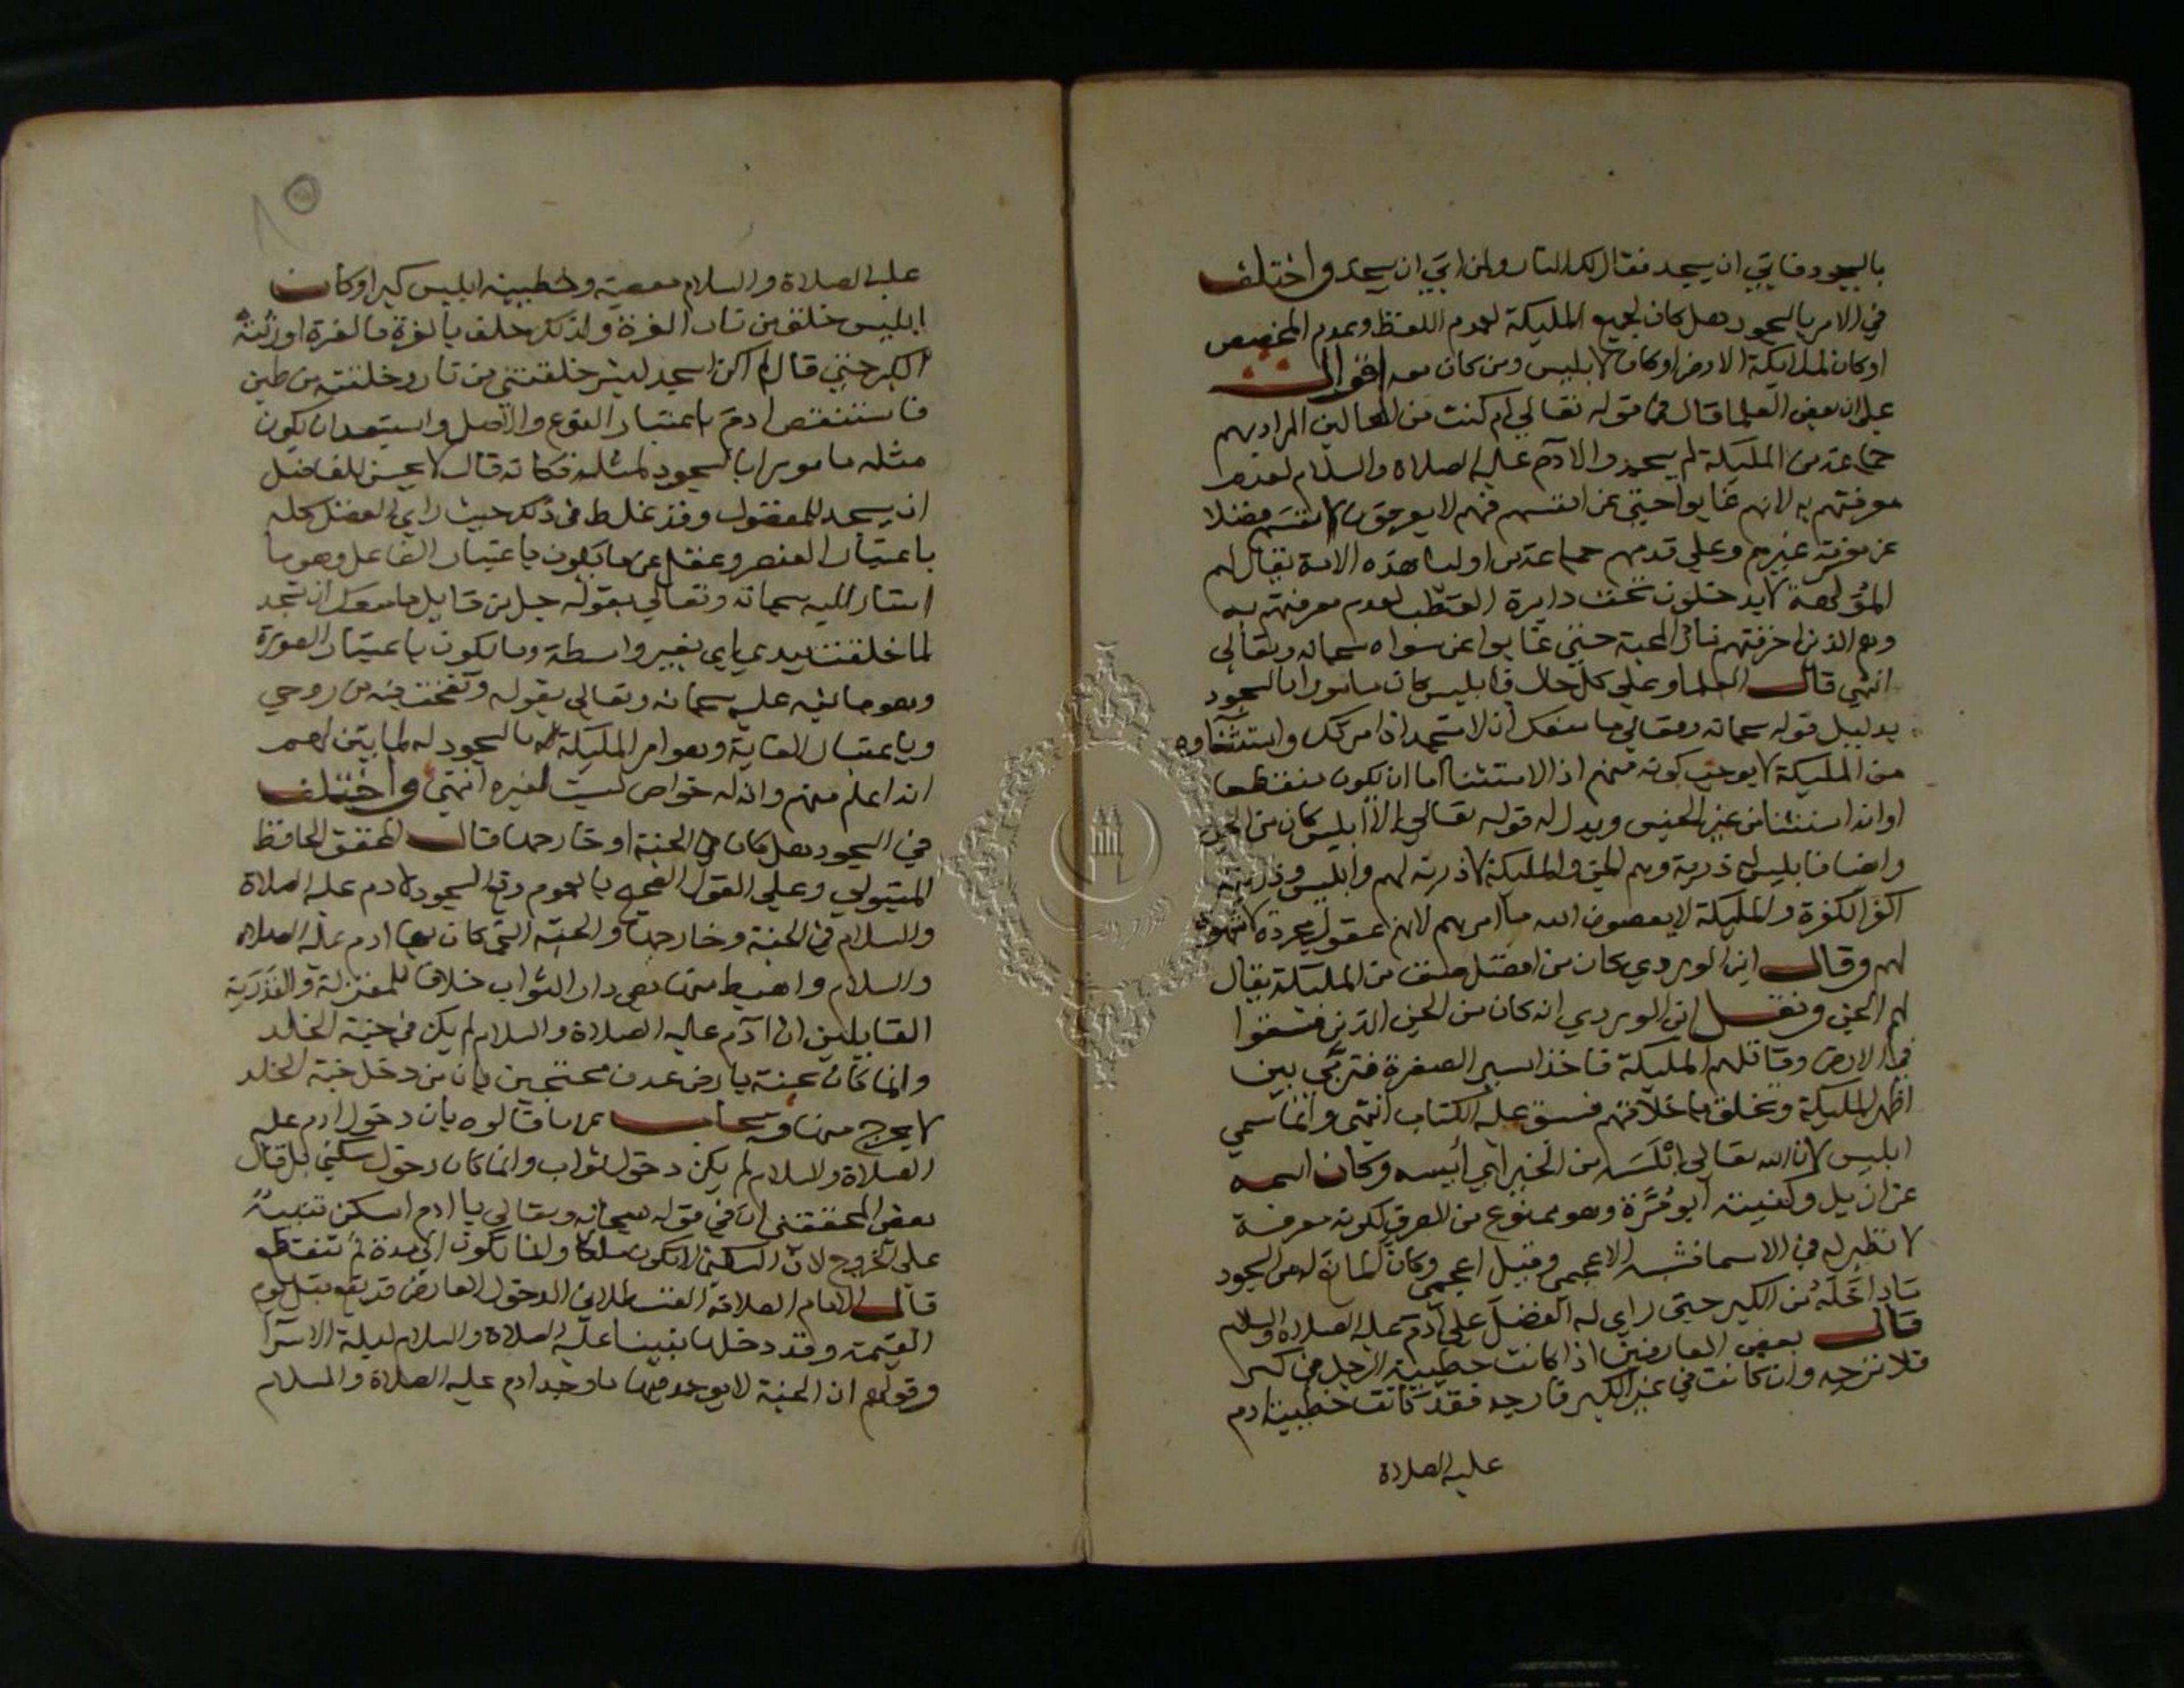 بالسجود فابي ان يسجد فقال لك النار ولمن ابي ان يسجد واختلف
في الامر بالسجود هل كان لجميع المليكة لعموم اللفظ وعدم المخصص
او كان لملايكة الارض او كان لابليس ومن كان معه اقوال
علي ان بعض العلما قال في قوله تعالي ام كنت من العالين المراد بهم
جماعة من المليكة لم يسجدوا لآدم عليه الصلاة والسلام لعدم
معرفتهم به لانهم غابوا حتي عن انفسهم فهم لا يعرفون انفسهم فضلا
عن معرفة غيرهم وعلي قدمهم جماعة من اوليا هذه الامة يقال لهم
لا يدخلون تحت دايرة القطب لعدم معرفتهم به
وهم الذين احرقتهم نار المحبة حتي غابوا عن سواه سبحانه وتعالي
انتهي قال العلما وعلي كل حال فابليس كان مامورا بالسجود
بدليل قوله سبحانه وتعالي ما منعك ان لا تسجد اذ امرتك واستثناوه
من المليكة لا يوجب كونه منهم اذ الاستثنا اما ان يكون منقطعا
او انه استثنا من غير الجنس ويدل له قوله تعالي الا ابليس كان من الجن
وايضا فابليس له ذرية وهم الجن والمليكة لا ذرية لهم وابليس وذريته
اكفر الكفرة والمليكة لا يعصون الله ما امرهم لانهم عقول مجردة لا شهوة
لهم وقال ابن الوردي كان من افضل صنف من المليكة يقال
لهم الجن ونقل ابن الوردي انه كان من الجن الذين فسقوا
في الارض وقاتلهم المليكة فاخذ اسير الصغره فتربي بين
اظهر المليكة وتخلق باخلاقهم فسبق عليه الكتاب انتهي وانما سمي
ابليس لان الله تعالي ابلسه من الخير اي أيسه وكان اسمه
عزازيل وكنيته ابو مُرَّة وهو ممنوع من الصرف لكونه معرفة
لا نظير له في الاسما فشبه الاعجمي وقيل اعجمي وكان المانع له من السجود
ما داخله من الكبر حتي راي له الفضل علي آدم عليه الصلاة والسلام
قال بعض العارفين اذا كانت خطيية الرجل في كبر
فلا ترجه وان كانت في غير الكبر فارجه فقد كانت خطيية ادم
عليه الصلاة
عليه الصلاة والسلام معصية وخطيية ابليس كبرا وكان
ابليس خلق من نار العزة ولذلك حلف بالعزة فالعزة اورثته
الكبر حتي قال لم اكن اسجد لبشر خلقتني من نار وخلقته من طين
فاستنقص ادم باعتبار النوع والاصل واستبعد ان يكون
مثله مامورا بالسجود لمثله فكانه قال لا يحسن للفاضل
ان يسجد للمفضول وقد غلط في ذلك حيث راي الفضل كله
باعتبار العنصر وغفل عن ما يكون باعتبار الفاعل وهو ما
اشار اليه سبحانه وتعالي بقوله جل من قايل ما منعك ان تسجد
لما خلقت بيدي اي بغير واسطة وما يكون باعتبار الصورة
وهو ما نبه عليه سبحانه وتعالي بقوله ونفخت فيه من روحي
وباعتبار الغاية وهو امر المليكة بالسجود له لما تبين لهم
انه اعلم منهم وان له خواص ليست لغيره انتهي واختلف
في السجود هل كان في الجنة او خارجها قال المحقق الحافظ
وعلي القول الصحيح بالعموم وقع السجود لادم عليه الصلاة
والسلام في الجنة وخارجها والجنة التي كان بها ادم عليه الصلاة
والسلام واهبط منها هي دار الثواب خلافا للمعتزلة والقدرية
القايلين ان ادم عليه الصلاة والسلام لم يكن في جنة الخلد
وانما كان بجنة بارض عدن محتجين بان من دخل جنة الخلد
لا يخرج منها ويجاب عن ما قالوه بان دخول ادم عليه
الصلاة والسلام لم يكن دخول ثواب وانما كان دخول سكني بل قال
بعض المحققين ان في قوله سبحانه وتعالي يا ادم اسكن تنبيهٌ
علي الخروج لان السكني لا تكون ملكا وانما تكون الي مدة ثم تنقطع
قال الامام العلامة القسطلاني الدخول العارض قد يقع قبل يوم
القيمة وقد دخلها نبينا عليه الصلاة والسلام ليلة الاسرا
وقولهم ان الجنة لا يوجد فيها ما وجد ادم عليه الصلاة والسلام